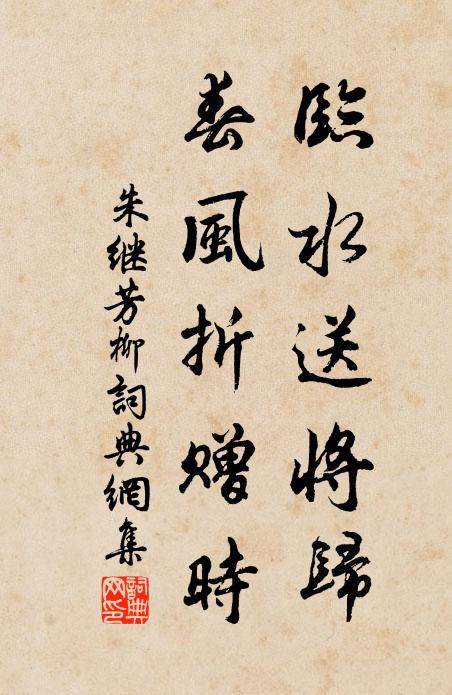 臨水送將歸
春風折贈時
朱继芳柳詞典網集
詞典网印